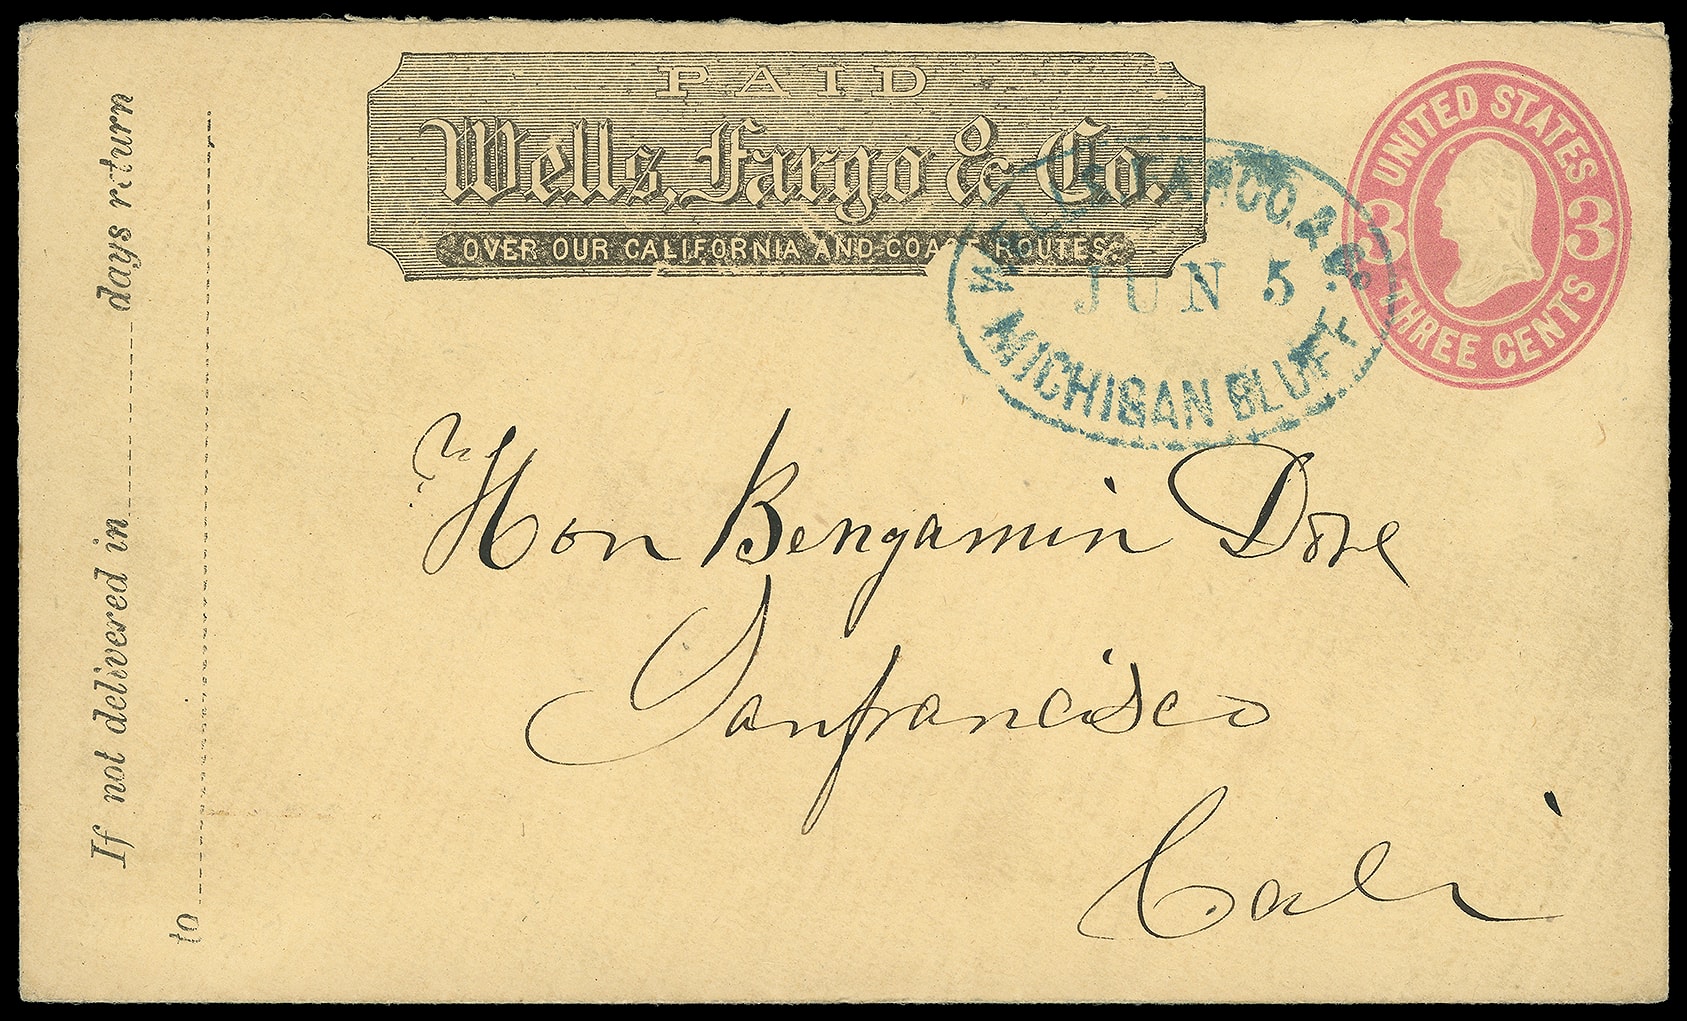 PAID
Wells, Fargo & Co.
OVER OUR CALIFORNIA AND COAST ROUTES.
WELLS FARGO & CO.
JUN 5
MICHIGAN BLUFF
UNITED STATES
3 3
THREE CENTS
If not delivered in days return
to
Hon Benjamin Dore
Sanfrancisco
Cali